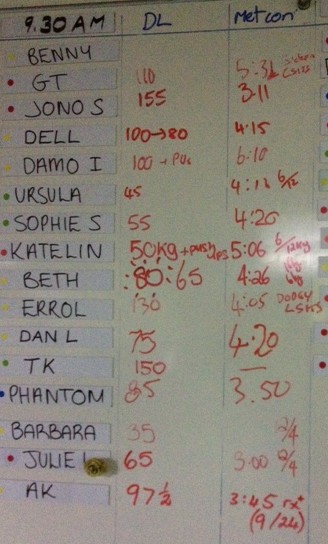 9.30 AM DL Metcon
BENNY
GT 110 5:31
JONO S 155 3·11
DELL 100→80 4·15
DAMO I 100 → PUs 6:10
URSULA 45 4:18 6/12
SOPHIE S 55 4:20
KATELIN 50kg + push ups 5:06 6/12kg
BETH :80:65 4:26
ERROL 130 4:05 DODGY LSITS
DAN L 75 4:20
TK 150 —
PHANTOM 85 3.50
BARBARA 35 2/4
JULIE L 65 3:00 2/4
AK 97½ 3:45 rx+
(9/24)